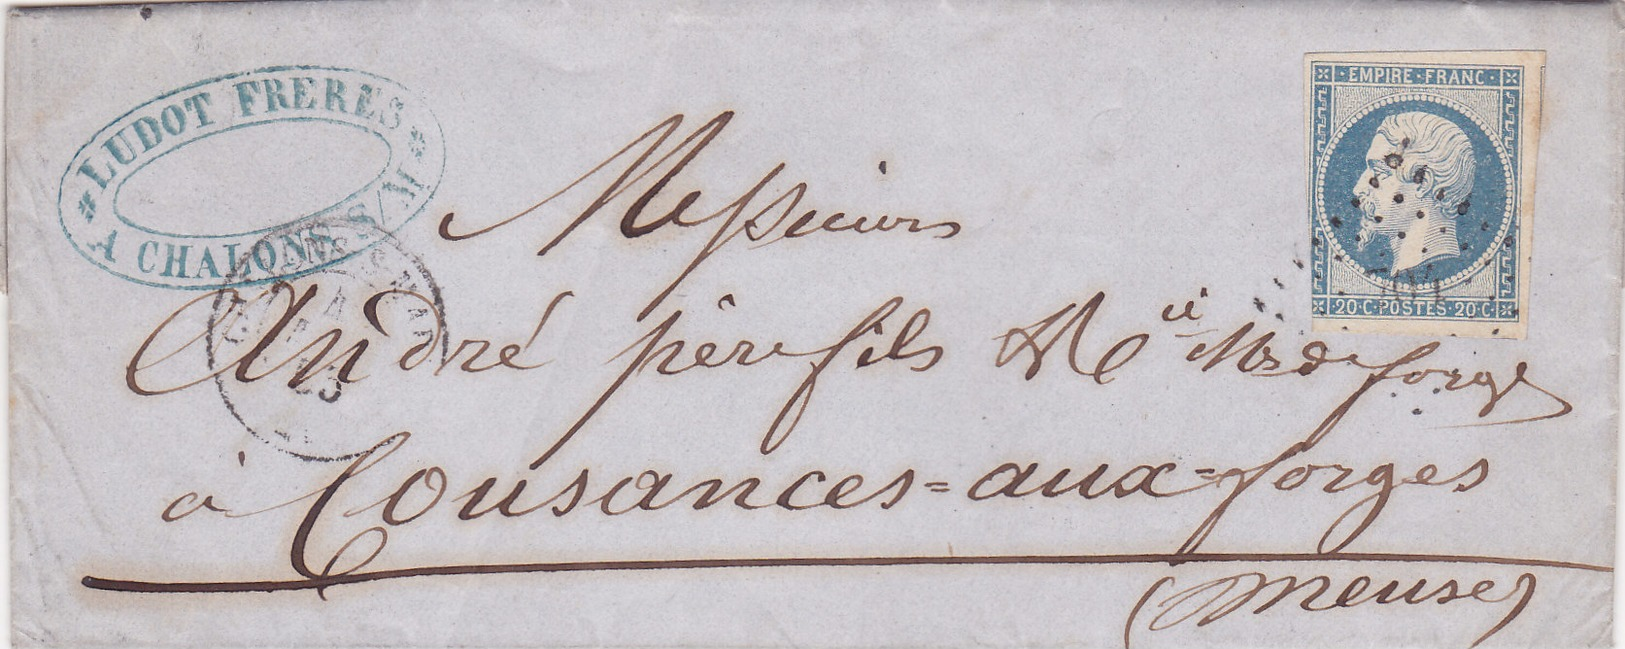 LUDOT FRERES
A CHALONS S/M
EMPIRE FRANC
20 C POSTES 20 C
Messieurs
André père fils & Cie Mes de forges
à Cousances=aux=forges
(Meuse)